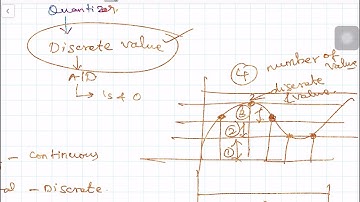 Quantizer
Discrete value
A-ID
's & 0
④ number of
value
discrete
value
③
②
①
- continuous
al - Discrete